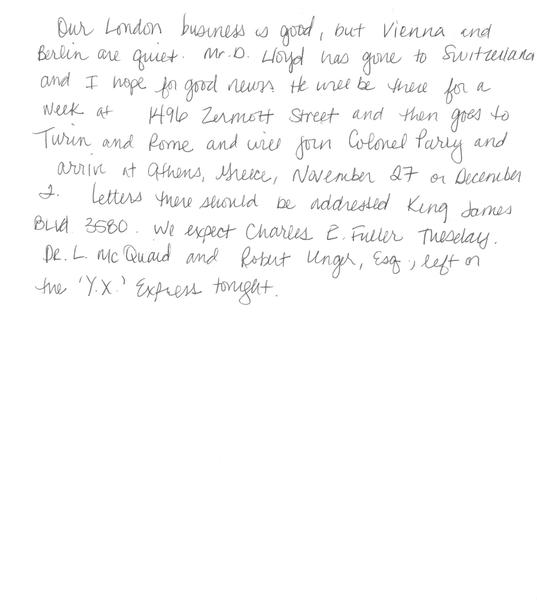 Our London business is good, but Vienna and
Berlin are quiet. Mr. D. Lloyd has gone to Switzerland
and I hope for good news. He will be there for a
week at 1496 Zermott Street and then goes to
Turin and Rome and will join Colonel Parry and
arrive at Athens, Greece, November 27 or December
2. Letters there should be addressed King James
Blvd 3580. We expect Charles E. Fuller Tuesday.
Dr. L. McQuaid and Robert Unger, Esq., left on
the 'Y.X.' Express tonight.